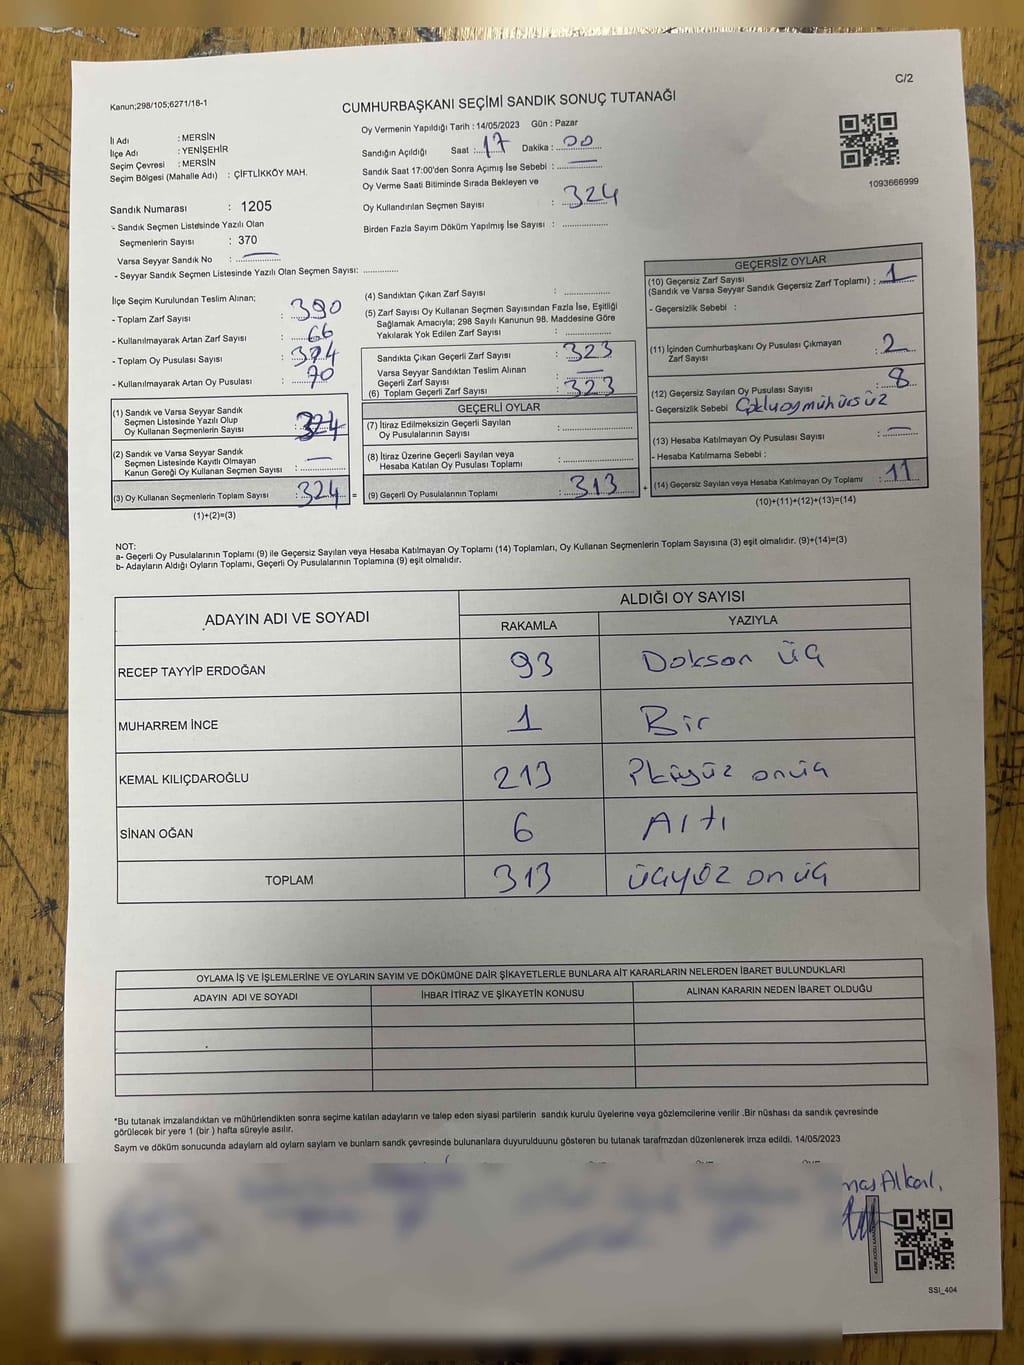 C/2
Kanun;298/105;6271/18-1
CUMHURBAŞKANI SEÇİMİ SANDIK SONUÇ TUTANAĞI
İl Adı : MERSİN
İlçe Adı : YENİŞEHİR
Seçim Çevresi : MERSİN
Seçim Bölgesi (Mahalle Adı) : ÇİFTLİKKÖY MAH.
Sandık Numarası : 1205
- Sandık Seçmen Listesinde Yazılı Olan
Seçmenlerin Sayısı : 370
Varsa Seyyar Sandık No :
- Seyyar Sandık Seçmen Listesinde Yazılı Olan Seçmen Sayısı:
Oy Vermenin Yapıldığı Tarih : 14/05/2023 Gün : Pazar
Sandığın Açıldığı Saat : 17 Dakika : 00
Sandık Saat 17:00'den Sonra Açımış İse Sebebi :
Oy Verme Saati Bitiminde Sırada Bekleyen ve
Oy Kullandırılan Seçmen Sayısı : 324
Birden Fazla Sayım Döküm Yapılmış İse Sayısı :
1093666999
İlçe Seçim Kurulundan Teslim Alınan;
- Toplam Zarf Sayısı : 390
- Kullanılmayarak Artan Zarf Sayısı : 66
- Toplam Oy Pusulası Sayısı :
- Kullanılmayarak Artan Oy Pusulası : 70
(1) Sandık ve Varsa Seyyar Sandık
Seçmen Listesinde Yazılı Olup
Oy Kullanan Seçmenlerin Sayısı : 324
(2) Sandık ve Varsa Seyyar Sandık
Seçmen Listesinde Kayıtlı Olmayan
Kanun Gereği Oy Kullanan Seçmen Sayısı :
(3) Oy Kullanan Seçmenlerin Toplam Sayısı : 324 =
(1)+(2)=(3)
(4) Sandıktan Çıkan Zarf Sayısı :
(5) Zarf Sayısı Oy Kullanan Seçmen Sayısından Fazla İse, Eşitliği
Sağlamak Amacıyla; 298 Sayılı Kanunun 98. Maddesine Göre
Yakılarak Yok Edilen Zarf Sayısı :
Sandıkta Çıkan Geçerli Zarf Sayısı : 323
Varsa Seyyar Sandıktan Teslim Alınan
Geçerli Zarf Sayısı :
(6) Toplam Geçerli Zarf Sayısı : 323
GEÇERLİ OYLAR
(7) İtiraz Edilmeksizin Geçerli Sayılan
Oy Pusulalarının Sayısı :
(8) İtiraz Üzerine Geçerli Sayılan veya
Hesaba Katılan Oy Pusulası Toplamı :
(9) Geçerli Oy Pusulalarının Toplamı : 313 +
GEÇERSİZ OYLAR
(10) Geçersiz Zarf Sayısı
(Sandık ve Varsa Seyyar Sandık Geçersiz Zarf Toplamı) : 1
- Geçersizlik Sebebi :
(11) İçinden Cumhurbaşkanı Oy Pusulası Çıkmayan
Zarf Sayısı : 2
(12) Geçersiz Sayılan Oy Pusulası Sayısı : 8
- Geçersizlik Sebebi
(13) Hesaba Katılmayan Oy Pusulası Sayısı :
- Hesaba Katılmama Sebebi :
(14) Geçersiz Sayılan veya Hesaba Katılmayan Oy Toplamı : 11
(10)+(11)+(12)+(13)=(14)
NOT:
a- Geçerli Oy Pusulalarının Toplamı (9) ile Geçersiz Sayılan veya Hesaba Katılmayan Oy Toplamı (14) Toplamları, Oy Kullanan Seçmenlerin Toplam Sayısına (3) eşit olmalıdır. (9)+(14)=(3)
b- Adayların Aldığı Oyların Toplamı, Geçerli Oy Pusulalarının Toplamına (9) eşit olmalıdır.
ADAYIN ADI VE SOYADI
ALDIĞI OY SAYISI
RAKAMLA YAZIYLA
RECEP TAYYİP ERDOĞAN 93 Doksan üç
MUHARREM İNCE 1 Bir
KEMAL KILIÇDAROĞLU 213 onüç
SİNAN OĞAN 6 Altı
TOPLAM 313 üçyüz onüç
OYLAMA İŞ VE İŞLEMLERİNE VE OYLARIN SAYIM VE DÖKÜMÜNE DAİR ŞİKAYETLERLE BUNLARA AİT KARARLARIN NELERDEN İBARET BULUNDUKLARI
ADAYIN ADI VE SOYADI İHBAR İTİRAZ VE ŞİKAYETİN KONUSU ALINAN KARARIN NEDEN İBARET OLDUĞU
*Bu tutanak imzalandıktan ve mühürlendikten sonra seçime katılan adayların ve talep eden siyasi partilerin sandık kurulu üyelerine veya gözlemcilerine verilir .Bir nüshası da sandık çevresinde
görülecek bir yere 1 (bir ) hafta süreyle asılır.
Sayım ve döküm sonucunda adayların ald oyların sayların ve bunların sandk çevresinde bulunanlara duyurulduunu gösteren bu tutanak tarafmzdan düzenlenerek imza edildi. 14/05/2023
SSI_404